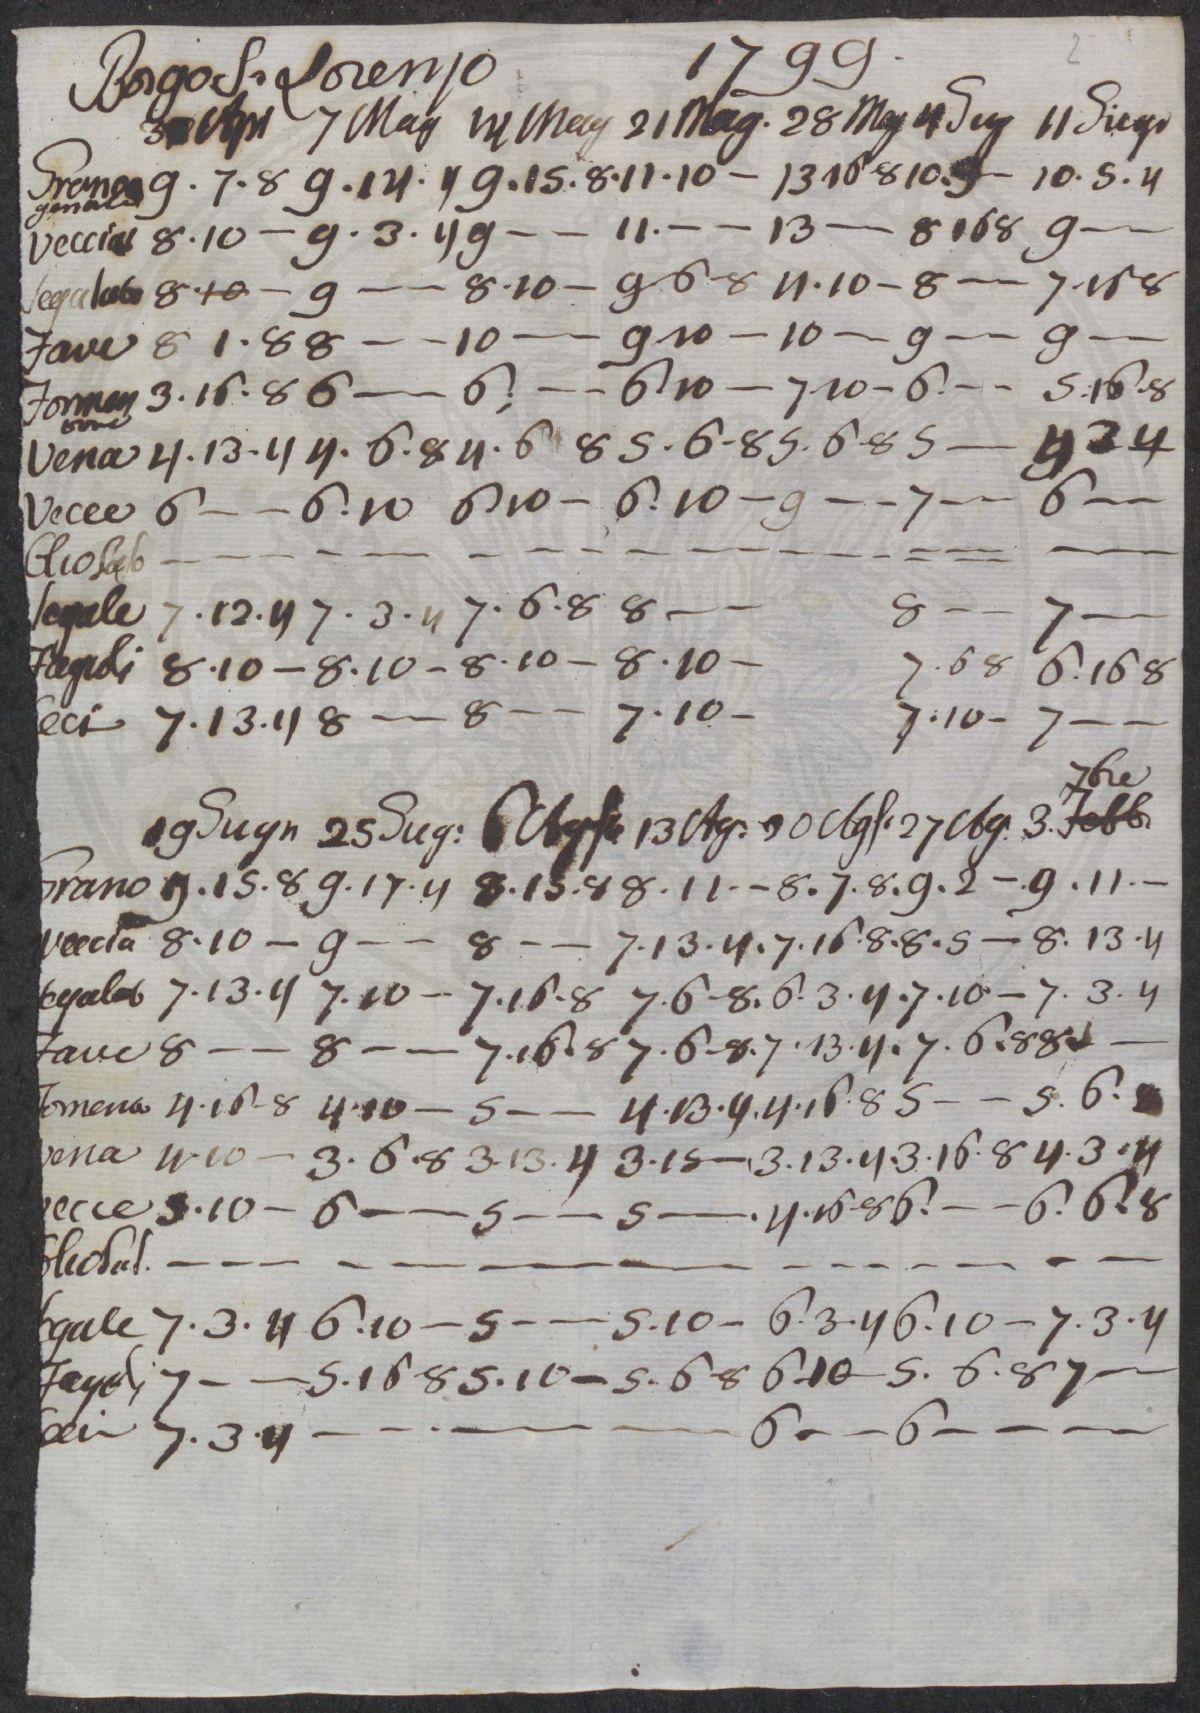 2
Borgo S. Lorenzo 1799.
30 Apr 7 Mag 14 Mag 21 Mag. 28 Mag 4 Giug 11 Giugn
Grano 9.7.8 9.14.4 9.15.8. 11.10— 13 16 8 10.5— 10.5.4
gentile
Vecciat 8.10— 9.3.4 9—— 11.—— 13— 8 16 8 9—
Segalato 8.10— 9—— 8.10— 9 6 8 11.10— 8— 7.16 8
Fave 8 1.8 8—— 10— 9 10— 10— 9— 9—
Formen 3.16.8 6— 6.—— 6.10— 7.10— 6.—— 5.16.8
tone
Vena 4.13.4 4.6.8 4.6 8 5.6.8 5.6.8 5— 4 3 4
Vecce 6—— 6.10 6.10— 6.10— 9—— 7— 6——
———————
Segale 7.12.4 7.3.4 7.6.8 8—— 8—— 7—
Fagioli 8.10— 8.10— 8.10— 8.10— 7.6 8 6.16 8
Ceci 7.13.4 8— 8—— 7.10— 7.10— 7——
7bre
19 Giugn 25 Giug: 6 Agosto 13 Ag. 20 Agst. 27 Ag. 3. Febb
Grano 9.15.8 9.17.4 8.15.8 8.11.— 8.7.8. 9.2— 9.11.—
Veccia 8.10— 9—— 8—— 7.13.4. 7.16.8. 8.5— 8.13.4
Segalat 7.13.4 7.10— 7.16.8 7.6.8. 6.3.4. 7.10— 7.3.4
Fave 8—— 8—— 7.16.8 7.6.8. 7.13.4. 7.6.8 8.—
Formena 4.16.8 4.10— 5—— 4.13.4. 4.16.8 5—— 5.6.8
Vena 4.10— 3.6.8 3.13.4 3.15— 3.13.4 3.16.8 4.3.4
Vecce 5.10— 6— 5— 5—. 4.16.8 6.—— 6.6.8
———————
Segale 7.3.4 6.10— 5—— 5.10— 6.3.4 6.10— 7.3.4
Fagioli 7—— 5.16 8 5.10— 5.6 8 6 10— 5.6.8 7—
Ceci 7.3.4 ——— 6—— 6————